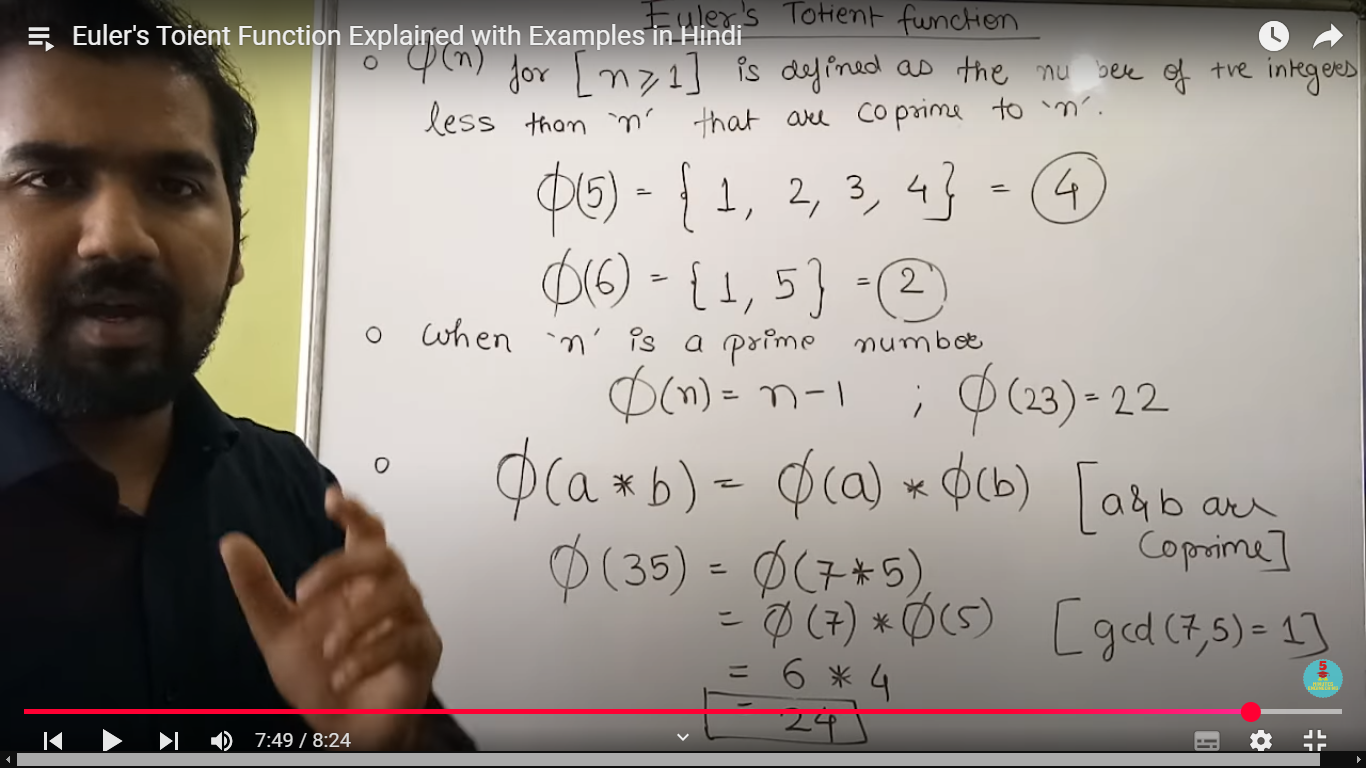 Euler's Toient Function Explained with Examples in Hindi
Euler's Totient function
ϕ(n) for [n ⩾ 1] is defined as the number of +ve integers
less than 'n' that are coprime to 'n'.
ϕ(5) = { 1, 2, 3, 4} = 4
ϕ(6) = { 1, 5 } = 2
When 'n' is a prime number
ϕ(n) = n-1 ; ϕ(23) = 22
ϕ(a * b) = ϕ(a) * ϕ(b) [a & b are
Coprime]
ϕ(35) = ϕ(7 * 5)
= ϕ(7) * ϕ(5) [gcd(7,5) = 1]
= 6 * 4
= 24
5
7:49 / 8:24